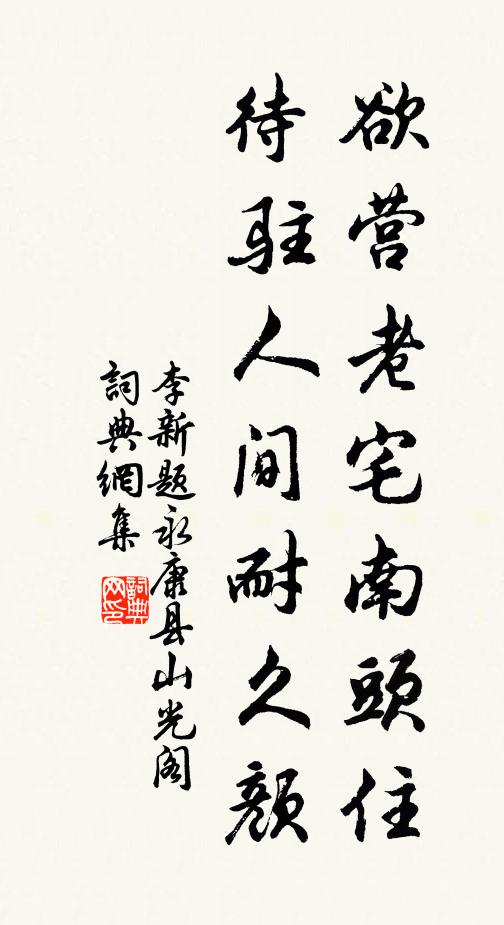 欲营老宅南頭住
待駐人间耐久顏
李新题永康县山光阁
詞典網集
詞典
网印